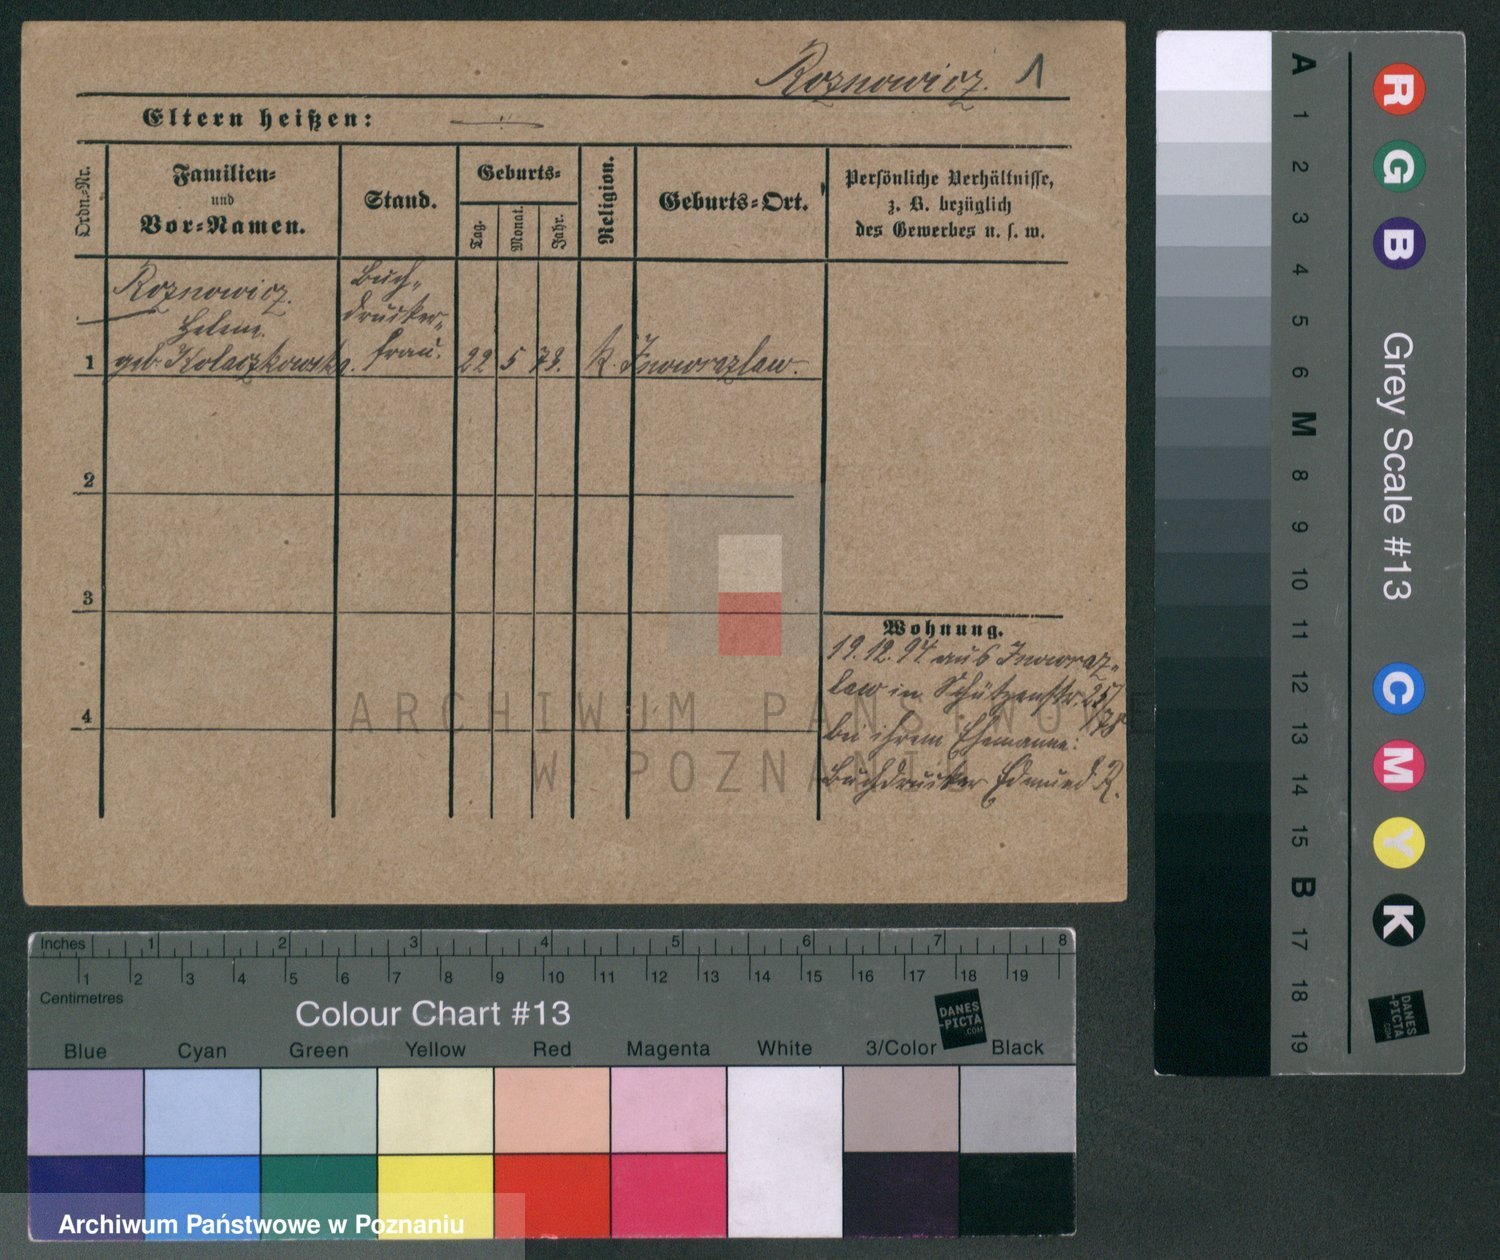 Roznowicz. 1
Eltern heißen:
Ordn.-Nr.
Familien-
und
Vor-Namen.
Stand.
Geburts-
Tag.
Monat.
Jahr.
Religion.
Geburts-Ort.
Persönliche Verhältnisse,
z. B. bezüglich
des Gewerbes u. s. w.
Roznowicz.
Helene.
geb. Kolaczkowska.
Buch-
drucker-
frau.
1
22 5 73. k. Inowrazlaw.
2
3
4
Wohnung.
19.12.94 aus Inowraz-
law in Schützenstr. 25/
bei ihrem Ehemanne:
Buchdrucker Edmund R.
ARCHIWUM PAŃSTWOWE
W POZNANIU
A 1 2 3 4 5 6 M 8 9 10 11 12 13 14 15 B 17 18 19
R G B
Grey Scale #13
C M Y K
DANES
-PICTA
.COM
Inches 1 2 3 4 5 6 7 8
1 2 3 4 5 6 7 8 9 10 11 12 13 14 15 16 17 18 19
Centimetres
Colour Chart #13
DANES
-PICTA
.COM
Blue Cyan Green Yellow Red Magenta White 3/Color Black
Archiwum Państwowe w Poznaniu